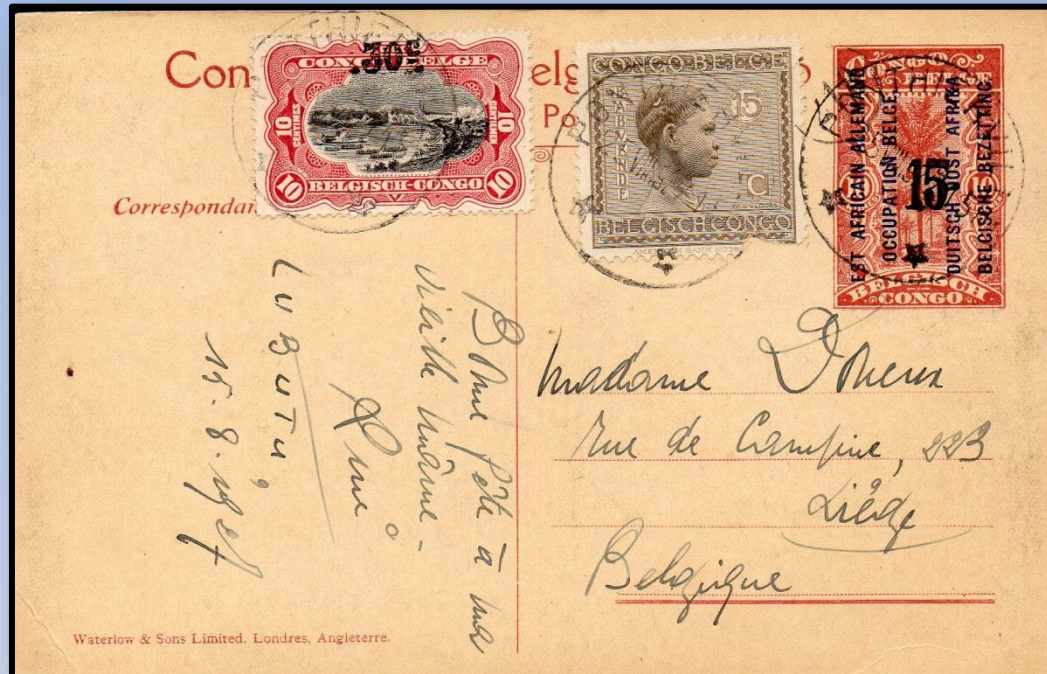 Con
elg
Po
Correspondan
.30c.
CONGO BELGE
10
CENTIMES
10
CENTIEMEN
10
10
BELGISCH-CONGO
CONGO BELGE
15
C
BELGISCH CONGO
CONGO
BELGE
EST AFRICAIN ALLEMAND
OCCUPATION BELGE.
15
DUITSCH OOST AFRIKA
BELGISCHE BEZETTING.
BELGISCH
CONGO
Bonne fête à ma
vieille
LUBUTU
15.8.
Madame
Rue de Campine, 223
Liège
Belgique
Waterlow & Sons Limited. Londres, Angleterre.